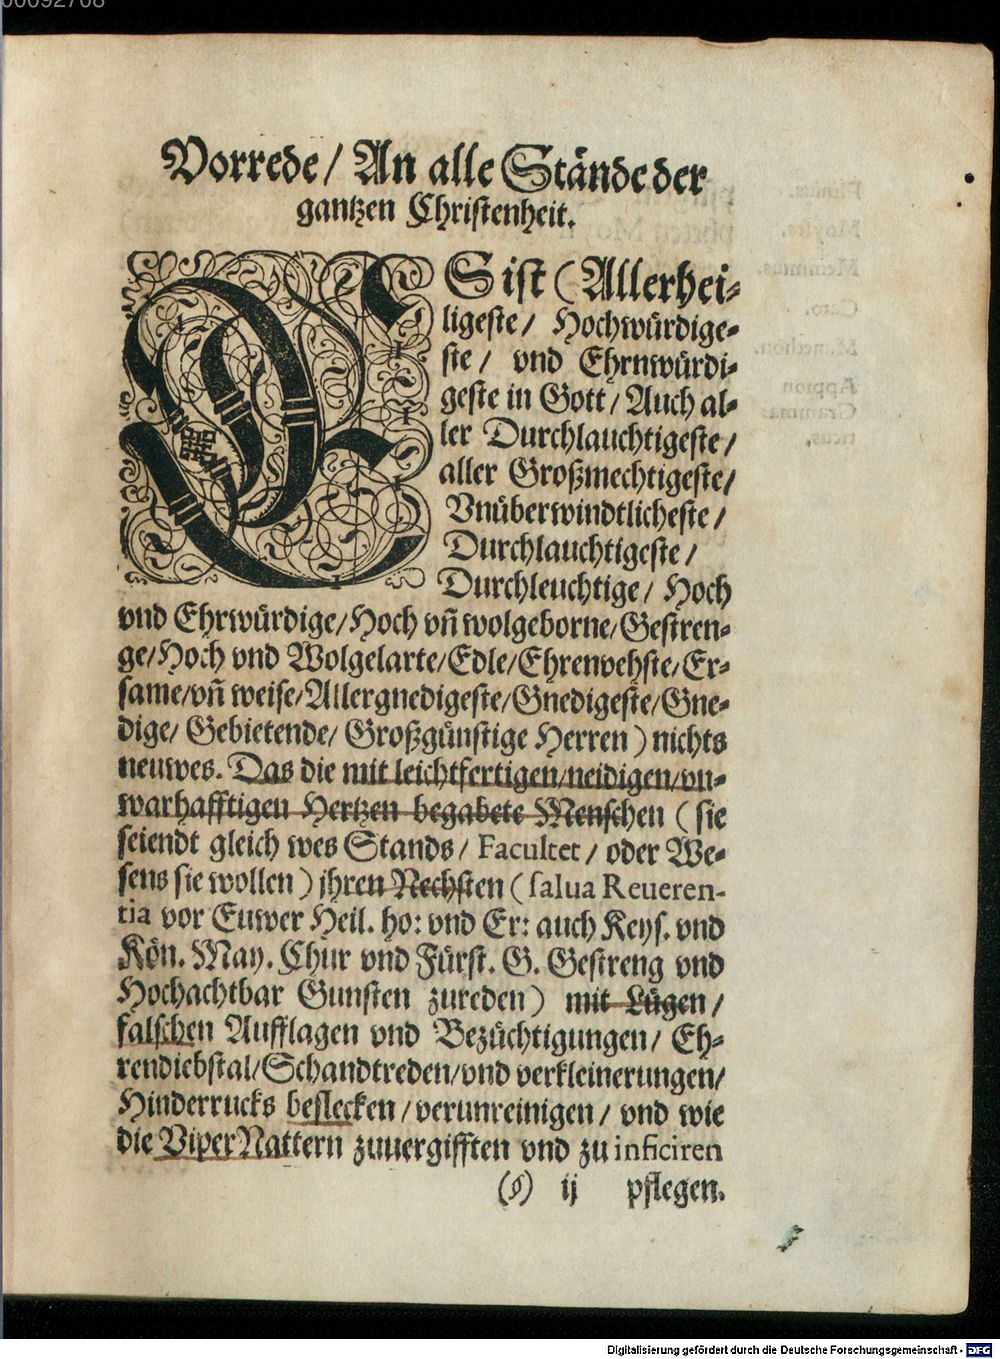 00092708
Vorrede/ An alle Stände der
gantzen Christenheit.
ES ist (Allerhei⸗
ligeste/ Hochwürdige⸗
ste/ vnd Ehrnwürdi⸗
geste in Gott/ Auch al⸗
ler Durchlauchtigeste/
aller Großmechtigeste/
Vnüberwindtlicheste/
Durchlauchtigeste/
Durchleuchtige/ Hoch
vnd Ehrwürdige/ Hoch vñ wolgeborne/ Gestren⸗
ge/ Hoch vnd Wolgelarte/ Edle/ Ehrenvehste/ Er⸗
same/ vñ weise/ Allergnedigeste/ Gnedigeste/ Gne⸗
dige/ Gebietende/ Großgünstige Herren) nichts
neuwes. Das die mit leichtfertigen/ neidigen/ vn⸗
warhafftigen Hertzen begabete Menschen (sie
seiendt gleich wes Stands/ Facultet/ oder We⸗
sens sie wollen) jhren Nechsten (salua Reueren-
tia vor Euwer Heil. ho: vnd Er: auch Keys. vnd
Kön. May. Chur vnd Fürst. G. Gestreng vnd
Hochachtbar Gunsten zureden) mit Lügen/
falschen Aufflagen vnd Bezüchtigungen/ Eh⸗
rendiebstal/ Schandtreden/ vnd verkleinerungen/
Hinderrucks beflecken/ verunreinigen/ vnd wie
die ViperNattern zuuergifften vnd zu inficiren
(§) ij pflegen.
Digitalisierung gefördert durch die Deutsche Forschungsgemeinschaft - DFG